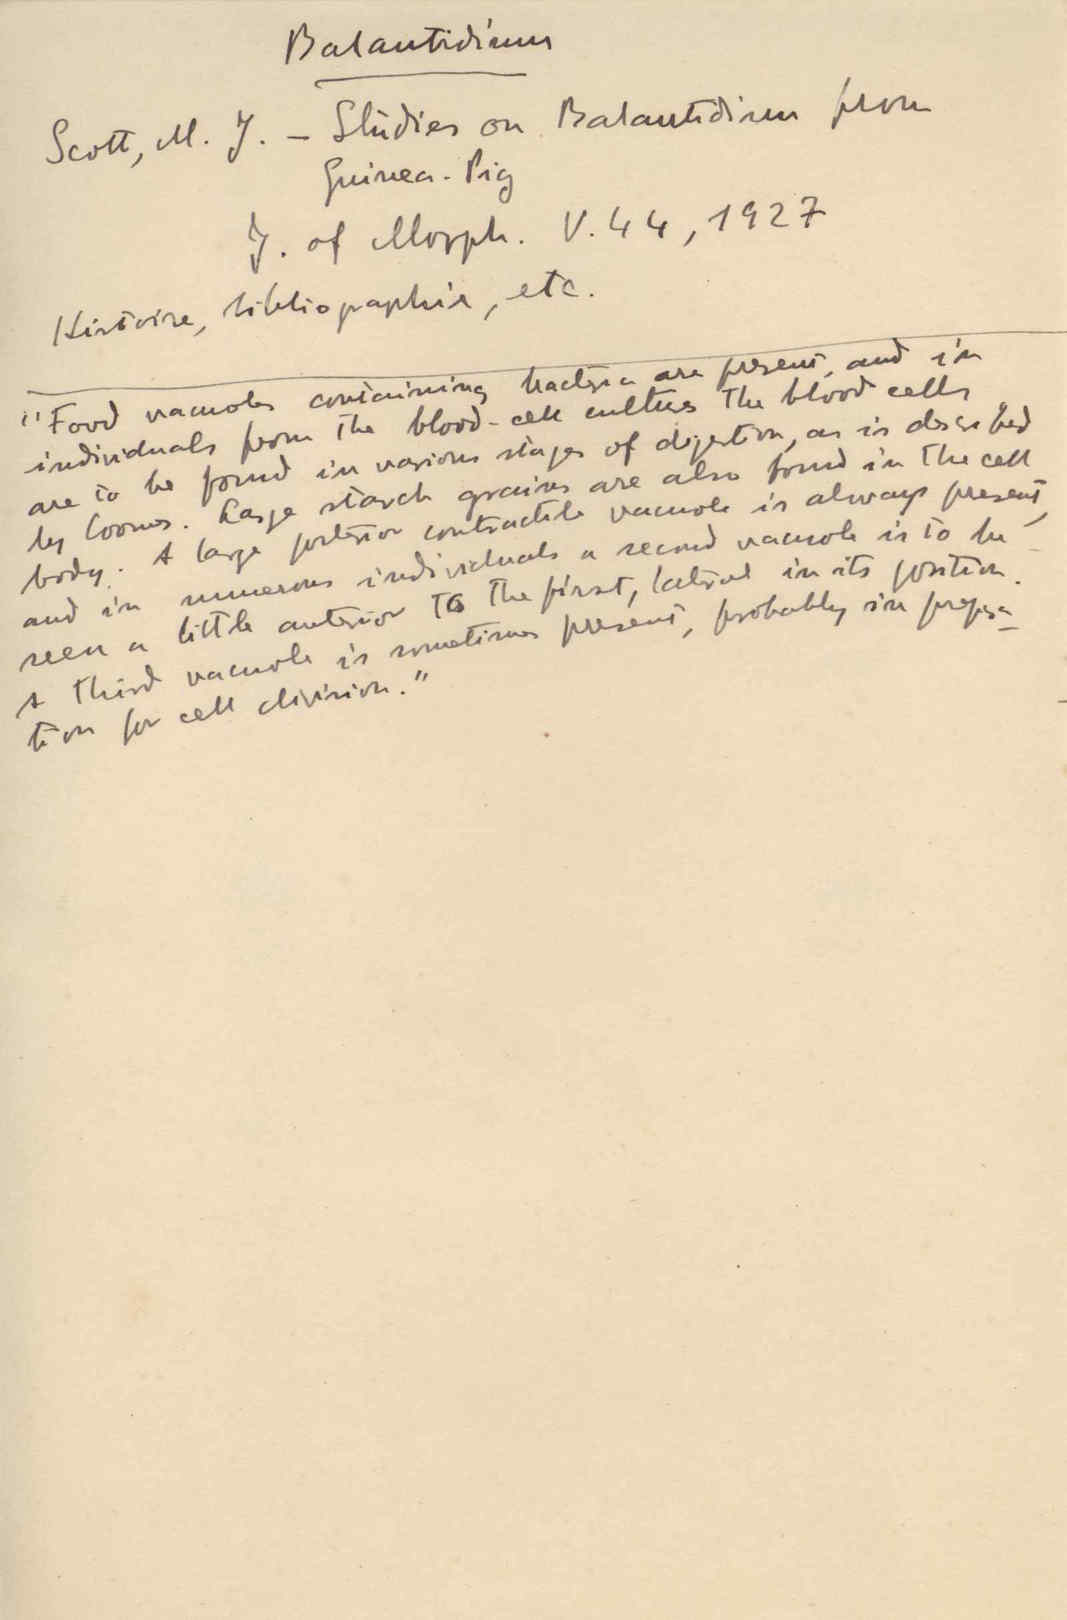 Balantidium
Scott, M. J. - Studies on Balantidium from
Guinea-Pig
J. of Morph. V. 44, 1927
Histoire, bibliographie, etc.
"Food vacuoles containing bacteria are present, and in
individuals from the blood-cell cultures the blood cells
are to be found in various stages of digestion, as is described
by Loomes. Large starch grains are also found in the cell
body. A large posterior contractile vacuole is always present,
and in numerous individuals a second vacuole is to be
seen a little anterior to the first, lateral in its position.
A third vacuole is sometimes present, probably in prepara-
tion for cell division."